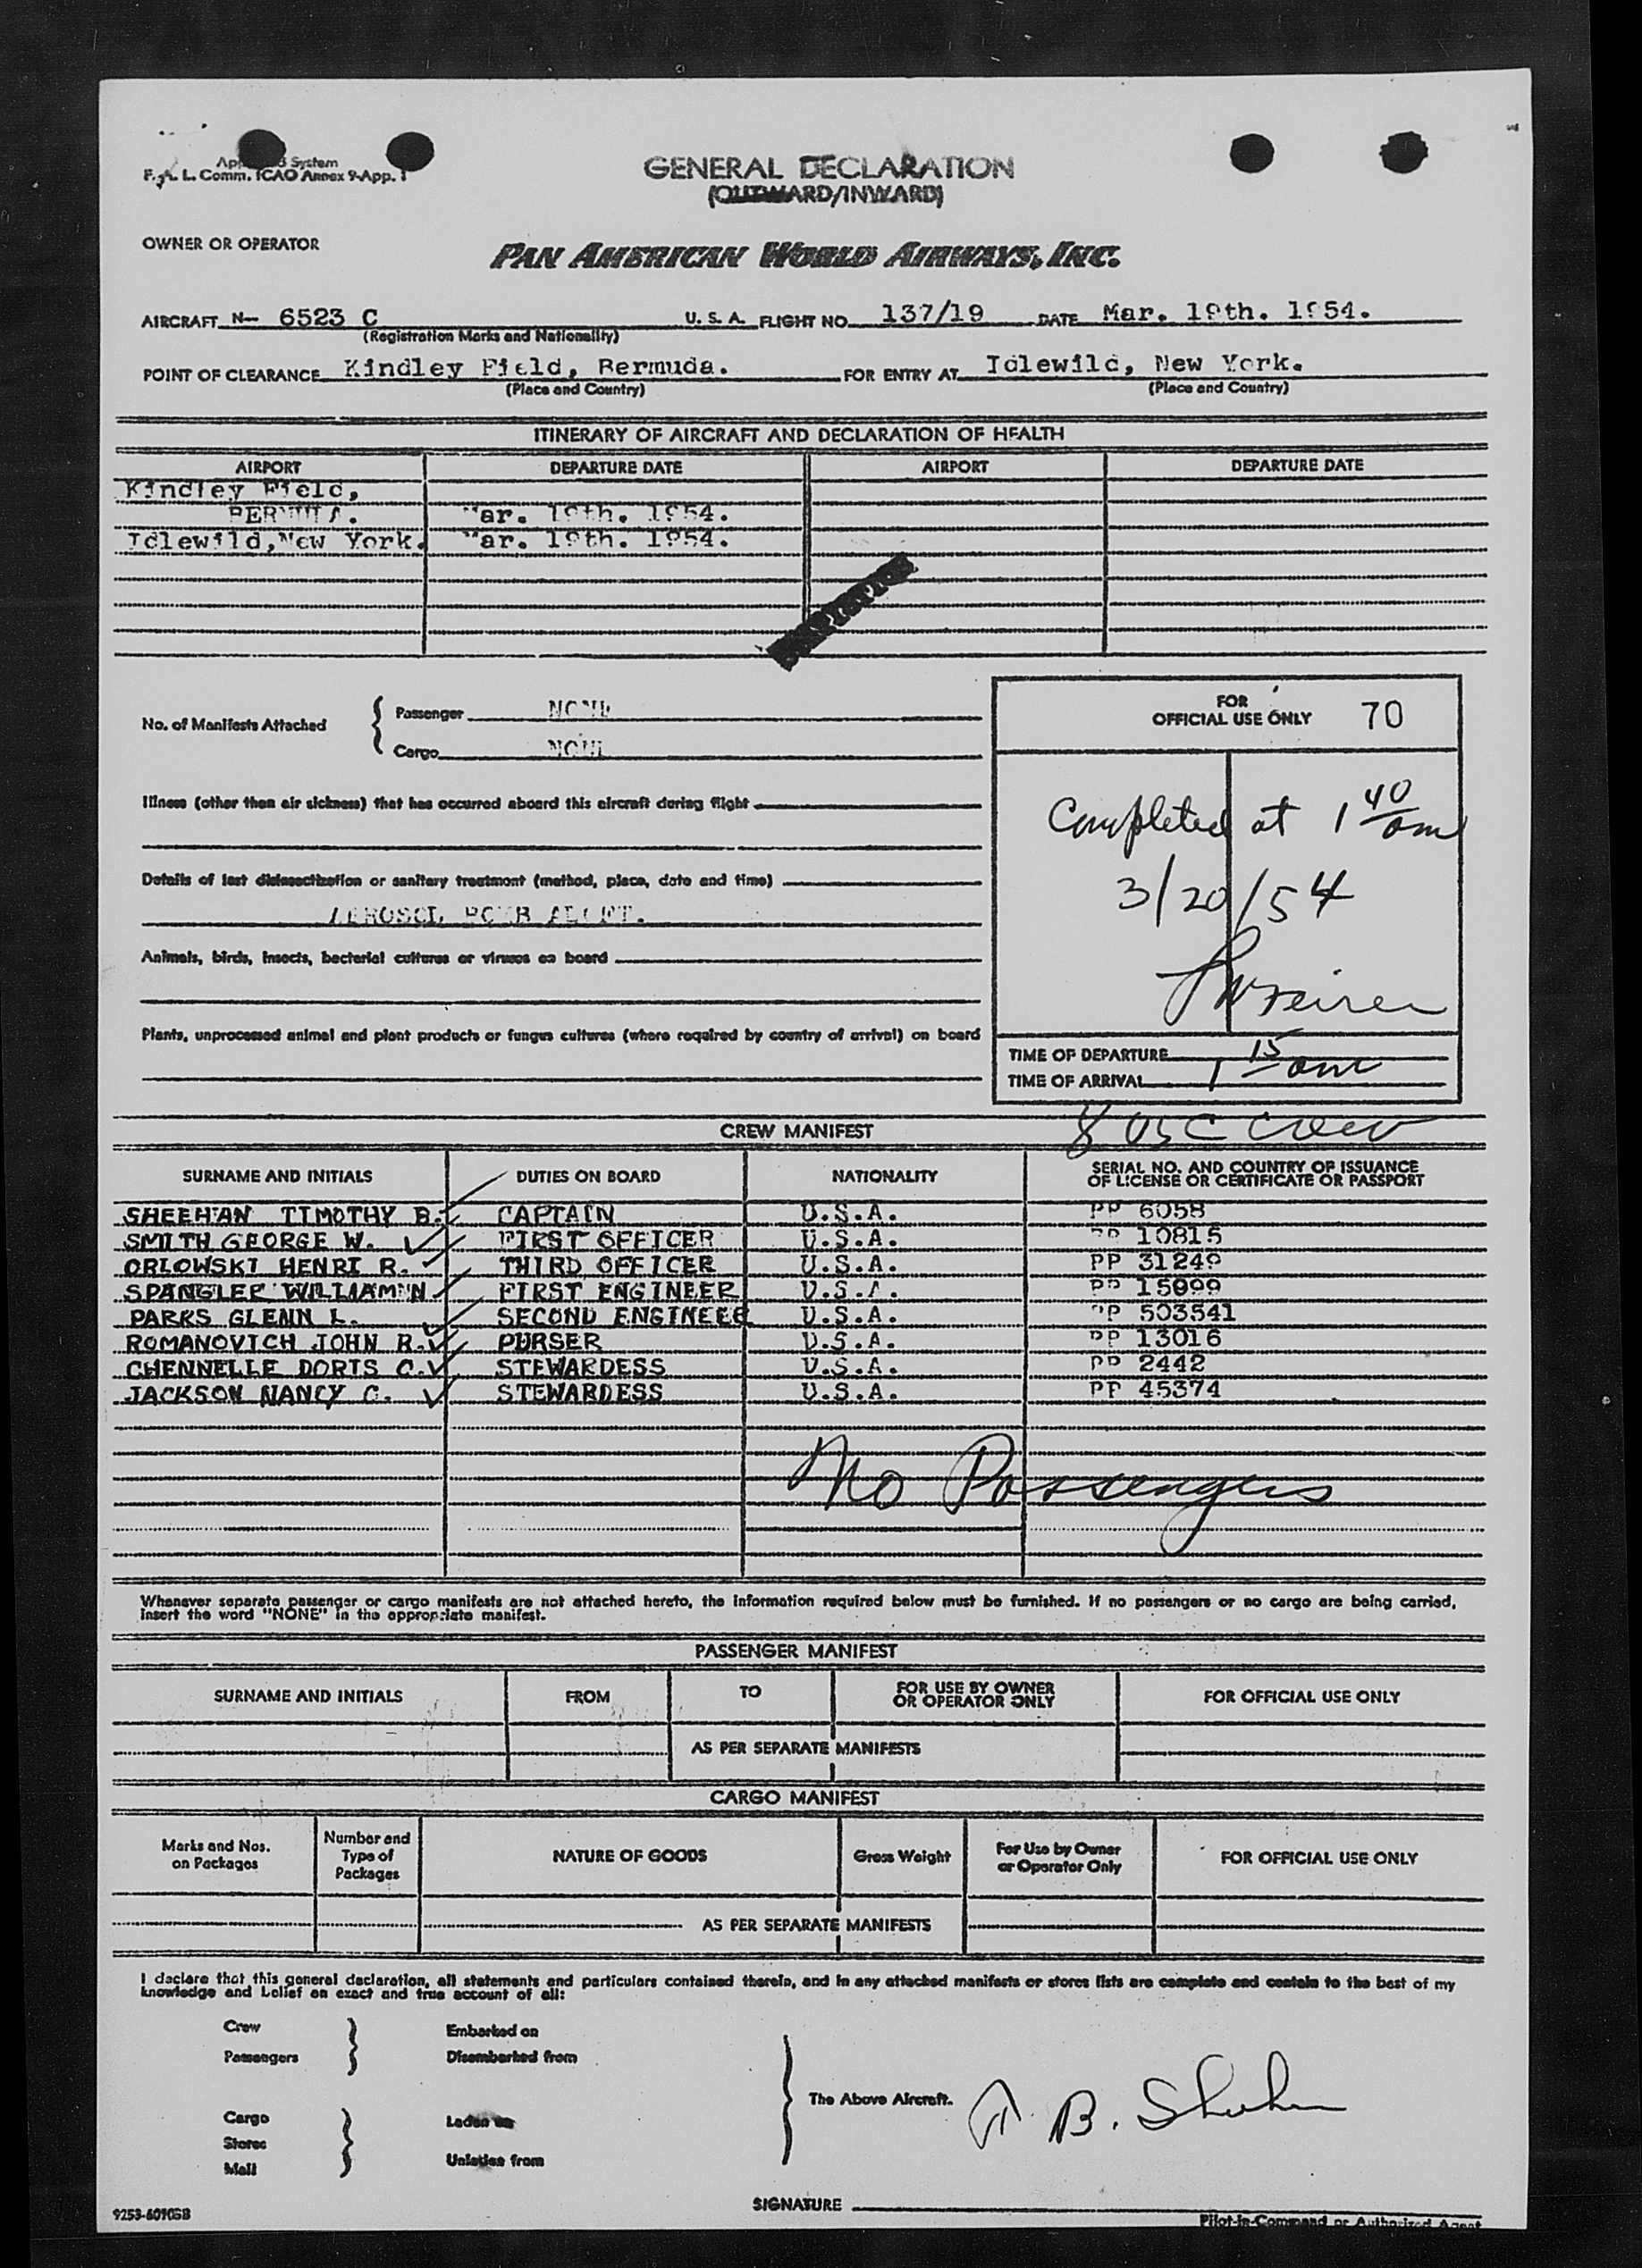 System
F. A. L. Comm. ICAO Annex 9-App. 1
GENERAL DECLARATION
(OUTWARD/INWARD)
OWNER OR OPERATOR
PAN AMERICAN WORLD AIRWAYS, INC.
AIRCRAFT N- 6523 C U. S. A. FLIGHT NO. 137/19 DATE Mar. 19th. 1954.
(Registration Marks and Nationality)
POINT OF CLEARANCE Kindley Field, Bermuda. FOR ENTRY AT Idlewild, New York.
(Place and Country) (Place and Country)
ITINERARY OF AIRCRAFT AND DECLARATION OF HEALTH
AIRPORT DEPARTURE DATE AIRPORT DEPARTURE DATE
Kindley Field,
BERMUDA. Mar. 19th. 1954.
Idlewild,New York. Mar. 19th. 1954.
No. of Manifests Attached
Passenger NONE
Cargo NONE
FOR
OFFICIAL USE ONLY 70
Completed at 1 40 am
3/20/54
Illness (other than air sickness) that has occurred aboard this aircraft during flight
Details of last disinsectization or sanitary treatment (method, place, date and time)
AEROSOL BOMB
Animals, birds, insects, bacterial cultures or viruses on board
Plants, unprocessed animal and plant products or fungus cultures (where required by country of arrival) on board
TIME OF DEPARTURE
TIME OF ARRIVAL 1 15 am
8 USC Crew
CREW MANIFEST
SURNAME AND INITIALS DUTIES ON BOARD NATIONALITY SERIAL NO. AND COUNTRY OF ISSUANCE
OF LICENSE OR CERTIFICATE OR PASSPORT
SHEEHAN TIMOTHY B. CAPTAIN U.S.A. PP 6058
SMITH GEORGE W. FIRST OFFICER U.S.A. PP 10815
ORLOWSKI HENRI R. THIRD OFFICER U.S.A. PP 31249
SPANGLER WILLIAM N. FIRST ENGINEER U.S.A. PP 15999
PARKS GLENN L. SECOND ENGINEER U.S.A. PP 503541
ROMANOVICH JOHN R. PURSER U.S.A. PP 13016
CHENNELLE DORIS C. STEWARDESS U.S.A. PP 2442
JACKSON NANCY C. STEWARDESS U.S.A. PP 45374
No Passengers
Whenever separate passenger or cargo manifests are not attached hereto, the information required below must be furnished. If no passengers or no cargo are being carried,
insert the word "NONE" in the appropriate manifest.
PASSENGER MANIFEST
SURNAME AND INITIALS FROM TO FOR USE BY OWNER
OR OPERATOR ONLY FOR OFFICIAL USE ONLY
AS PER SEPARATE MANIFESTS
CARGO MANIFEST
Marks and Nos.
on Packages
Number and
Type of
Packages
NATURE OF GOODS
Gross Weight
For Use by Owner
or Operator Only
FOR OFFICIAL USE ONLY
AS PER SEPARATE MANIFESTS
I declare that this general declaration, all statements and particulars contained therein, and in any attached manifests or stores lists are complete and contain to the best of my
knowledge and belief an exact and true account of all:
Crew Embarked on
Passengers Disembarked from
The Above Aircraft. T. B. Sheehan
Cargo Laden on
Stores
Mail Unladen from
SIGNATURE
Pilot-in-Command or Authorized Agent